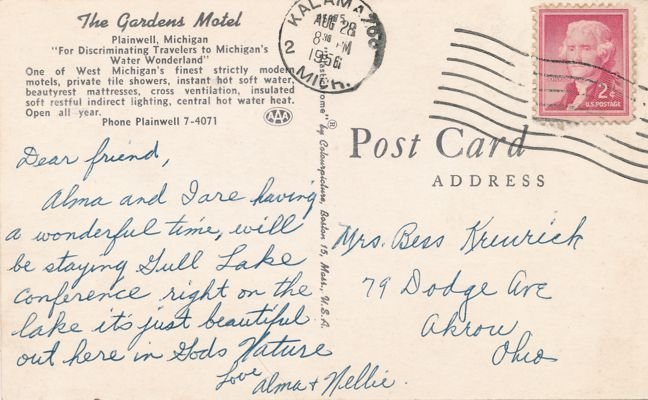 The Gardens Motel
Plainwell, Michigan
"For Discriminating Travelers to Michigan's
Water Wonderland"
One of West Michigan's finest strictly modern
motels, private tile showers, instant hot soft water,
beautyrest mattresses, cross ventilation, insulated
soft restful indirect lighting, central hot water heat.
Open all year.
Phone Plainwell 7-4071
AAA
KALAMAZOO
AUG 28
2 8 30 PM
1956
MICH.
2¢
U.S. POSTAGE
Post Card
ADDRESS
by Colourpicture, Boston 15, Mass., U.S.A.
Dear friend,
Alma and I are having
a wonderful time, will
be staying Gull Lake
conference right on the
lake it's just beautiful
out here in Gods Nature
Love
Alma + Nellie.
Mrs. Bess
79 Dodge Ave
Akron
Ohio